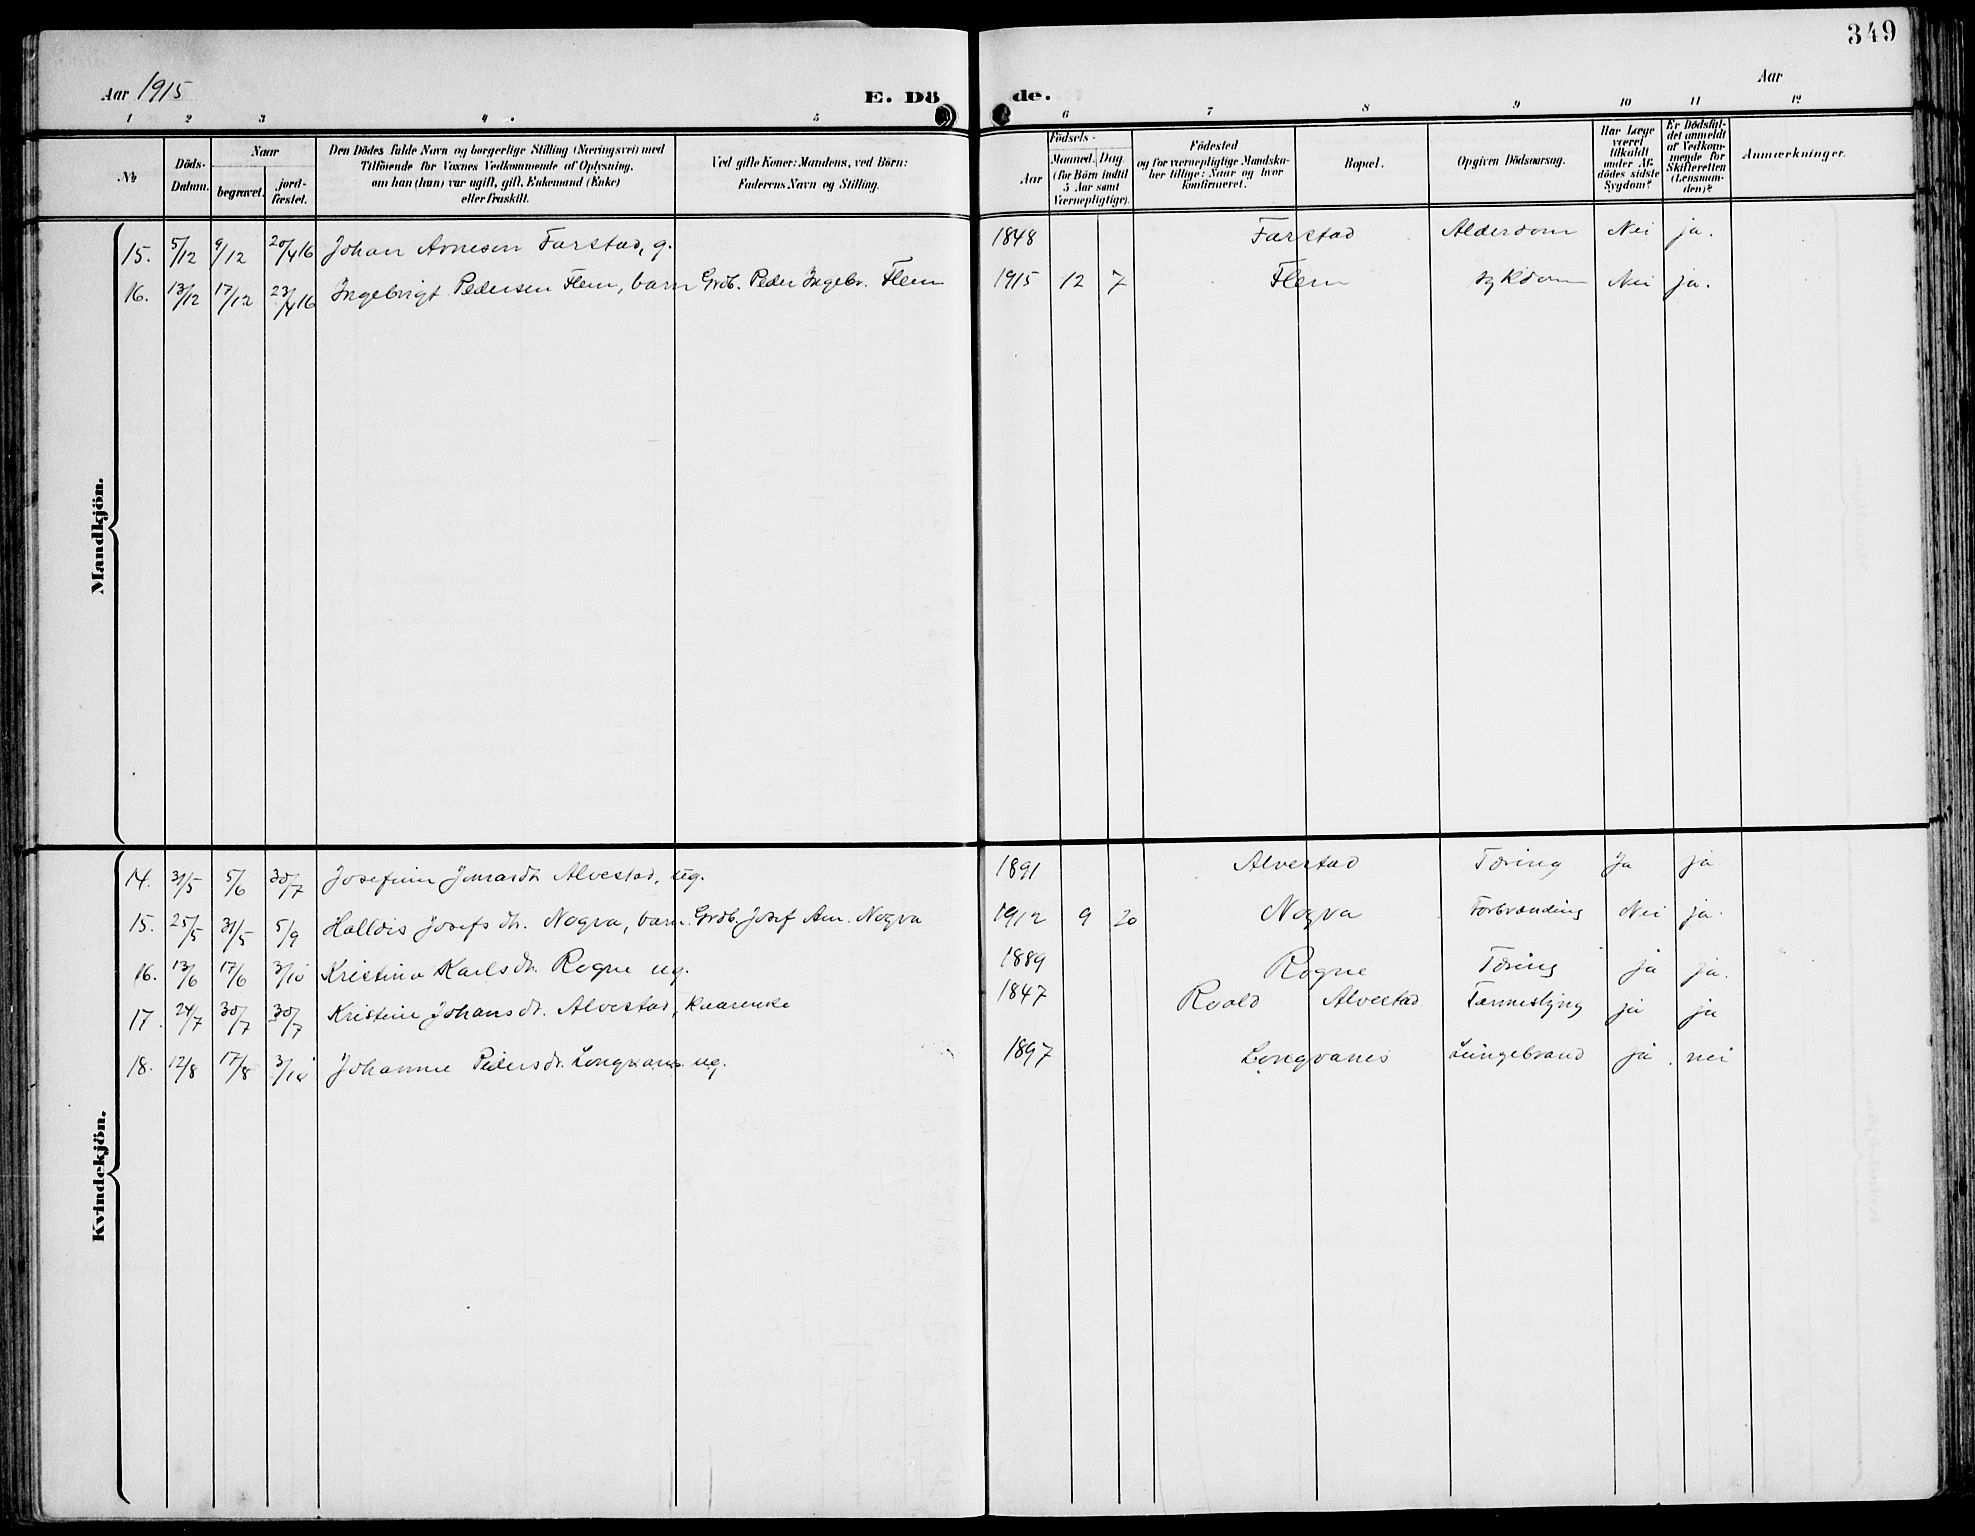 349
Aar 1915 E. Dö de. Aar
1 2 3 4 5 6 7 8 9 10 11 12
№ Döds-Datum. Naar begravet. jord-fæstet. Den Dödes fulde Navn og borgerlige Stilling (Næringsvei) med Tilföiende for Voxnes Vedkommende af Oplysning, om han (hun) var ugift, gift, Enkemand (Enke) eller fraskilt. Ved gifte Koner: Mandens, ved Börn: Faderens Navn og Stilling. Födsels- Aar Maaned. Dag. (for Börn indtil 5 Aar samt Værnepligtige). Födested og for værnepligtige Mandskaber tillige: Naar og hvor konfirmeret. Bopæl. Opgiven Dödsaarsag. Har Læge været tilkaldt under Afdödes sidste Sygdom? Er Dödsfaldet anmeldt af Vedkommende for Skifteretten (Lensmanden)? Anmærkninger.
Mandkjön.
15. 5/12 9/12 20/4 16 Johan Arnesen Farstad, g. 1848 Farstad Alderdom Nei ja.
16. 13/12 17/12 23/4 16 Ingebrigt Pedersen Flem, barn Grdb. Peder Ingebr. Flem 1915 12 7 Flem sykdom Nei ja.
Kvindekjön.
14. 31/5 5/6 30/7 Alvestad, ug. 1891 Alvestad Tæring Ja ja.
15. 25/5 31/5 5/9 Halldis Josefs dr. Nogva, barn. Grdb. Josef Am. Nogva 1912 9 20 Nogva Forbrænding Nei ja.
16. 13/6 17/6 3/10 Kristina Karlsdr. Rogne ug. 1889 Rogne Tæring ja ja.
17. 24/7 30/7 30/7 Kristine Johansdr. Alvestad, kaarenke 1847 Roald Alvestad Tarmeslyng ja ja
18. 12/8 17/8 3/10 Johanne Pedersdr. Longvanes ug. 1897 Longvanes Lungebrand ja. nei